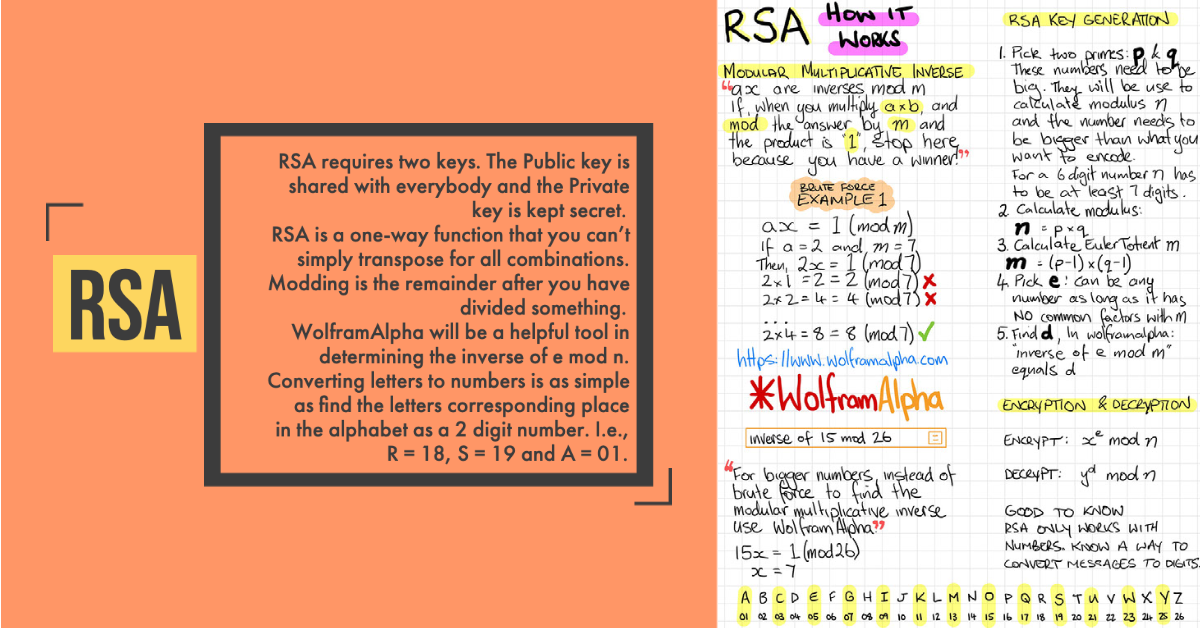 RSA
RSA requires two keys. The Public key is
shared with everybody and the Private
key is kept secret.
RSA is a one-way function that you can't
simply transpose for all combinations.
Modding is the remainder after you have
divided something.
WolframAlpha will be a helpful tool in
determining the inverse of e mod n.
Converting letters to numbers is as simple
as find the letters corresponding place
in the alphabet as a 2 digit number. I.e.,
R = 18, S = 19 and A = 01.
RSA HOW IT
WORKS
MODULAR MULTIPLICATIVE INVERSE
"ax are inverses mod m
if, when you multiply a×b, and
mod the answer by m and
the product is "1", stop here
because you have a winner!"
BRUTE FORCE
EXAMPLE 1
ax = 1 (mod m)
if a = 2 and m = 7
Then, 2x = 1 (mod 7)
2×1 = 2 = 2 (mod 7) ✗
2×2 = 4 = 4 (mod 7) ✗
...
2×4 = 8 = 8 (mod 7) ✓
https://www.wolframalpha.com
WolframAlpha
inverse of 15 mod 26
"For bigger numbers, instead of
brute force to find the
modular multiplicative inverse
use WolframAlpha"
15x = 1 (mod 26)
x = 7
RSA KEY GENERATION
1. Pick two primes: p & q
These numbers need to be
big. They will be use to
calculate modulus n
and the number needs to
be bigger than what you
want to encode.
For a 6 digit number n has
to be at least 7 digits.
2. Calculate modulus:
n = p×q
3. Calculate Euler Totient m
m = (p-1)×(q-1)
4. Pick e: can be any
number as long as it has
NO common factors with m
5. Find d, In wolframalpha:
"inverse of e mod m"
equals d
ENCRYPTION & DECRYPTION
ENCRYPT: xᵉ mod n
DECRYPT: yᵈ mod n
GOOD TO KNOW
RSA ONLY WORKS WITH
NUMBERS. KNOW A WAY TO
CONVERT MESSAGES TO DIGITS.
A B C D E F G H I J K L M N O P Q R S T U V W X Y Z
01 02 03 04 05 06 07 08 09 10 11 12 13 14 15 16 17 18 19 20 21 22 23 24 25 26